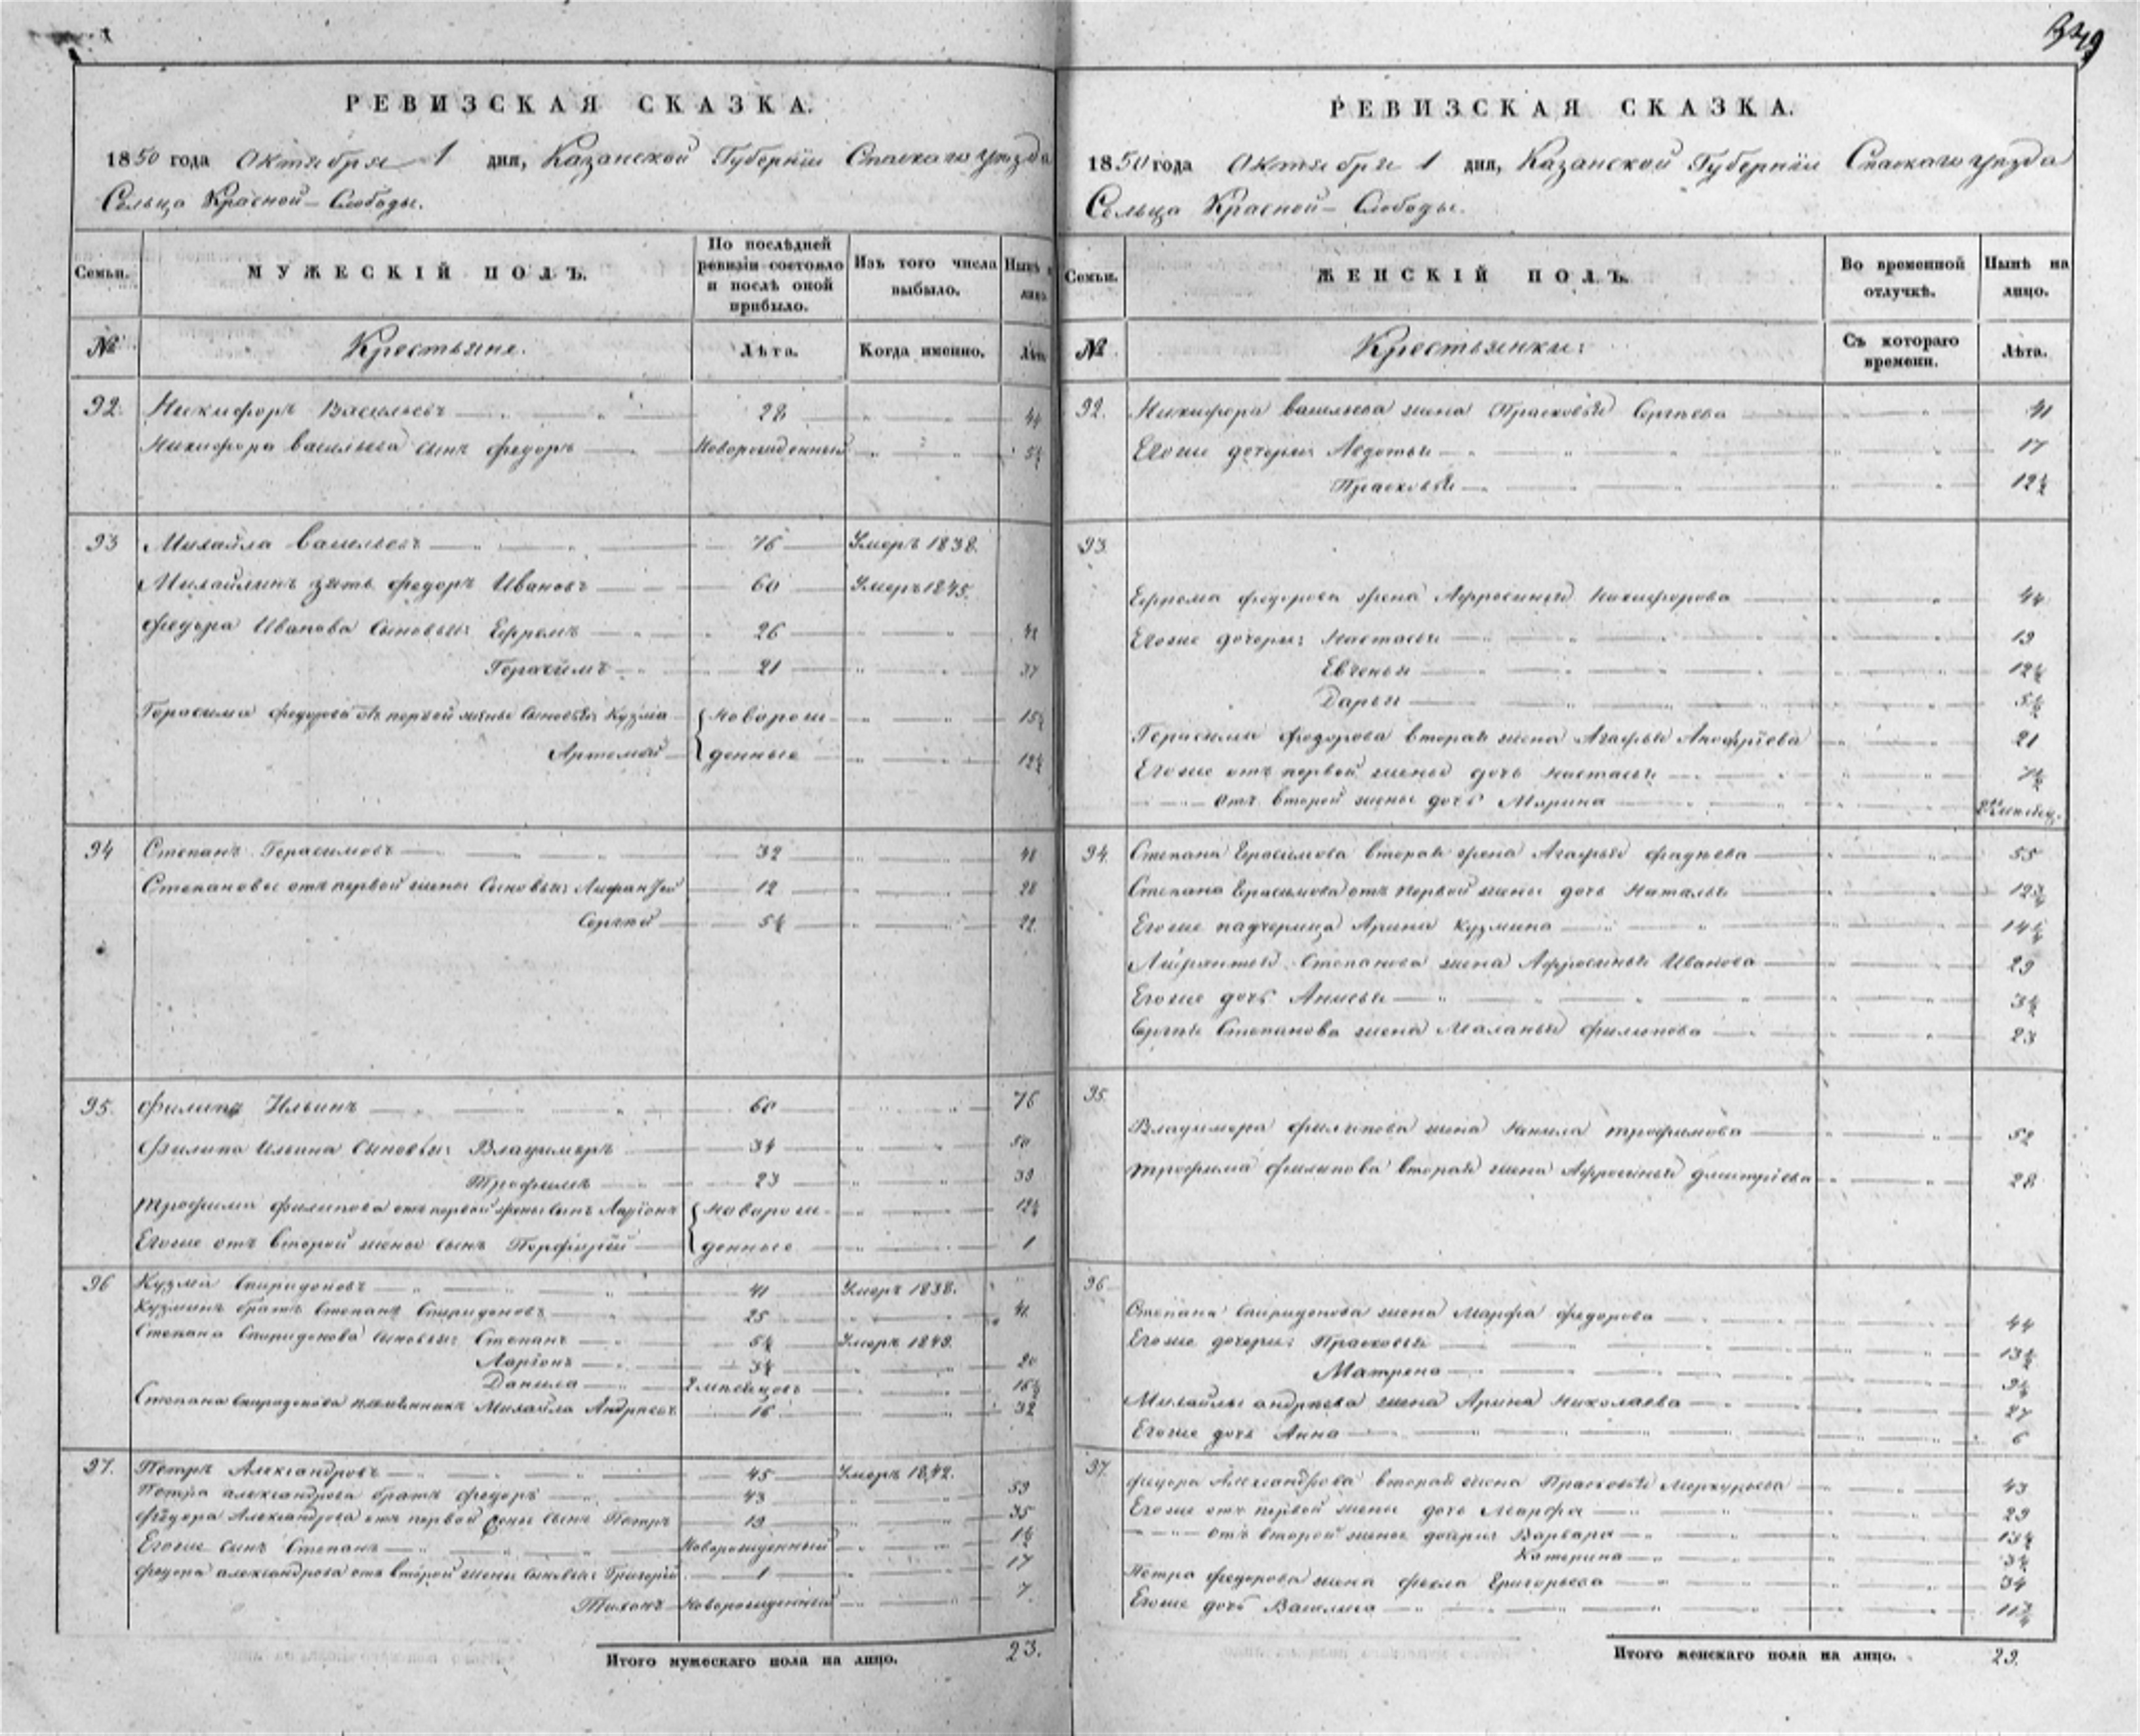 РЕВИЗСКАЯ СКАЗКА.
1850 года Октября 1 дня, Казанской Губернiи Спаскаго уѣзда
Сельца Красной-Слободы.
Семьи. МУЖЕСКIЙ ПОЛЪ. По послѣдней ревизiи состояло и послѣ оной прибыло. Изъ того числа выбыло. Нынѣ на лицо.
№ Крестьяне. Лѣта. Когда именно. Лѣта
92. Никифоръ Васильевъ 28 44
Никифора Васильева сынъ Федоръ Новорожденный 5½
93 Михайла Васильевъ 76 Умеръ 1838.
Михайлинъ зять Федоръ Ивановъ 60 Умеръ 1845.
Федора Иванова сыновья: Ефремъ 26 42
Герасимъ 21 37
Герасима Федорова отъ первой жены сыновья: Кузма Новорож- 15½
Артемей денные 12½
94 Степанъ Герасимовъ 32 48
Степановы отъ первой жены сыновья: 12 28
Сергѣй 5½ 22
95. Филипъ Ильинъ 60 76
Филипа Ильина сыновья: Владимеръ 34 50
Трофимъ 23 39
Трофима Филипова отъ первой жены сынъ Ларiонъ Новорож- 12½
Егоже отъ второй жены сынъ Порфирiй денные 1
96 Кузма Спиридоновъ 41 Умеръ 1838.
Кузминъ братъ Степанъ Спиридоновъ 25 41
Степана Спиридонова сыновья: Степанъ 5½ Умеръ 1849.
Ларiонъ 3½ 20
Данила 2 мѣсяцовъ 16½
Степана Спиридонова племянникъ Михайла Андреевъ 16 32
97. Петръ Александровъ 45 Умеръ 1842.
Петра Александрова братъ Федоръ 43 59
Федора Александрова отъ первой жены сынъ Петръ 19 35
Егоже сынъ Степанъ Новорожденный 1½
Федора Александрова отъ второй жены сыновья: Григорiй 1 17
Тихонъ Новорожденный 7
Итого мужескаго пола на лицо. 23.
РЕВИЗСКАЯ СКАЗКА.
1850 года Октября 1 дня, Казанской Губернiи Спаскаго уѣзда
Сельца Красной-Слободы.
Семьи. ЖЕНСКIЙ ПОЛЪ. Во временной отлучкѣ. Нынѣ на лицо.
№ Крестьянки: Съ котораго времени. Лѣта.
92. Никифора Васильева жена Прасковья Сергѣева 41
Егоже дочери: Авдотья 17
Прасковья 12½
93.
Ефрема Федорова жена Афросинья Никифорова 44
Егоже дочери: Настасья 19
Евгенья 12½
Дарья 5½
Герасима Федорова вторая жена Агафья Анофрiева 21
Егоже отъ первой жены дочь Настасья 7½
отъ второй жены дочь Марина
94. Степана Герасимова вторая жена Агафья Фадѣева 55
Степана Герасимова отъ первой жены дочь Наталья 12¾
Егоже падчерица Арина Кузмина 14¼
Степанова жена Афросинья Иванова 29
Егоже дочь Анисья 3½
Сергѣя Степанова жена Маланья Филипова 23
95.
Владимера Филипова жена Ненила Трофимова 52
Трофима Филипова вторая жена Афросинья Дмитрiева 28
96
Степана Спиридонова жена Марфа Федорова 44
Егоже дочери: Прасковья 13½
Матрена 9½
Михайлы Андреева жена Арина Николаева 27
Егоже дочь Анна 6
97. Федора Александрова вторая жена Прасковья Меркурьева 43
Егоже отъ первой жены дочь Марфа 29
отъ второй жены дочери: Варвара 13½
Катерина 3½
Петра Федорова жена Фекла Григорьева 34
Егоже дочь Василиса 11¾
Итого женскаго пола на лицо. 29.